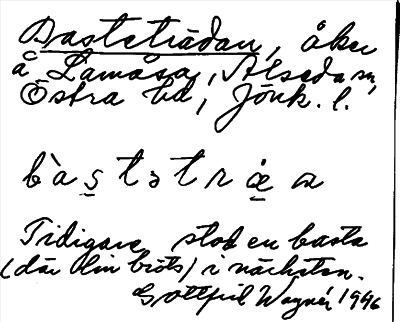 Basteträdan, åker
å Lamåsa, Alseda sn,
Östra hd, Jönk. l.
bàstətræ̀n
Tidigare stod en basta
(där lin bröts) i närheten.
Gottfrid Wagnér 1946